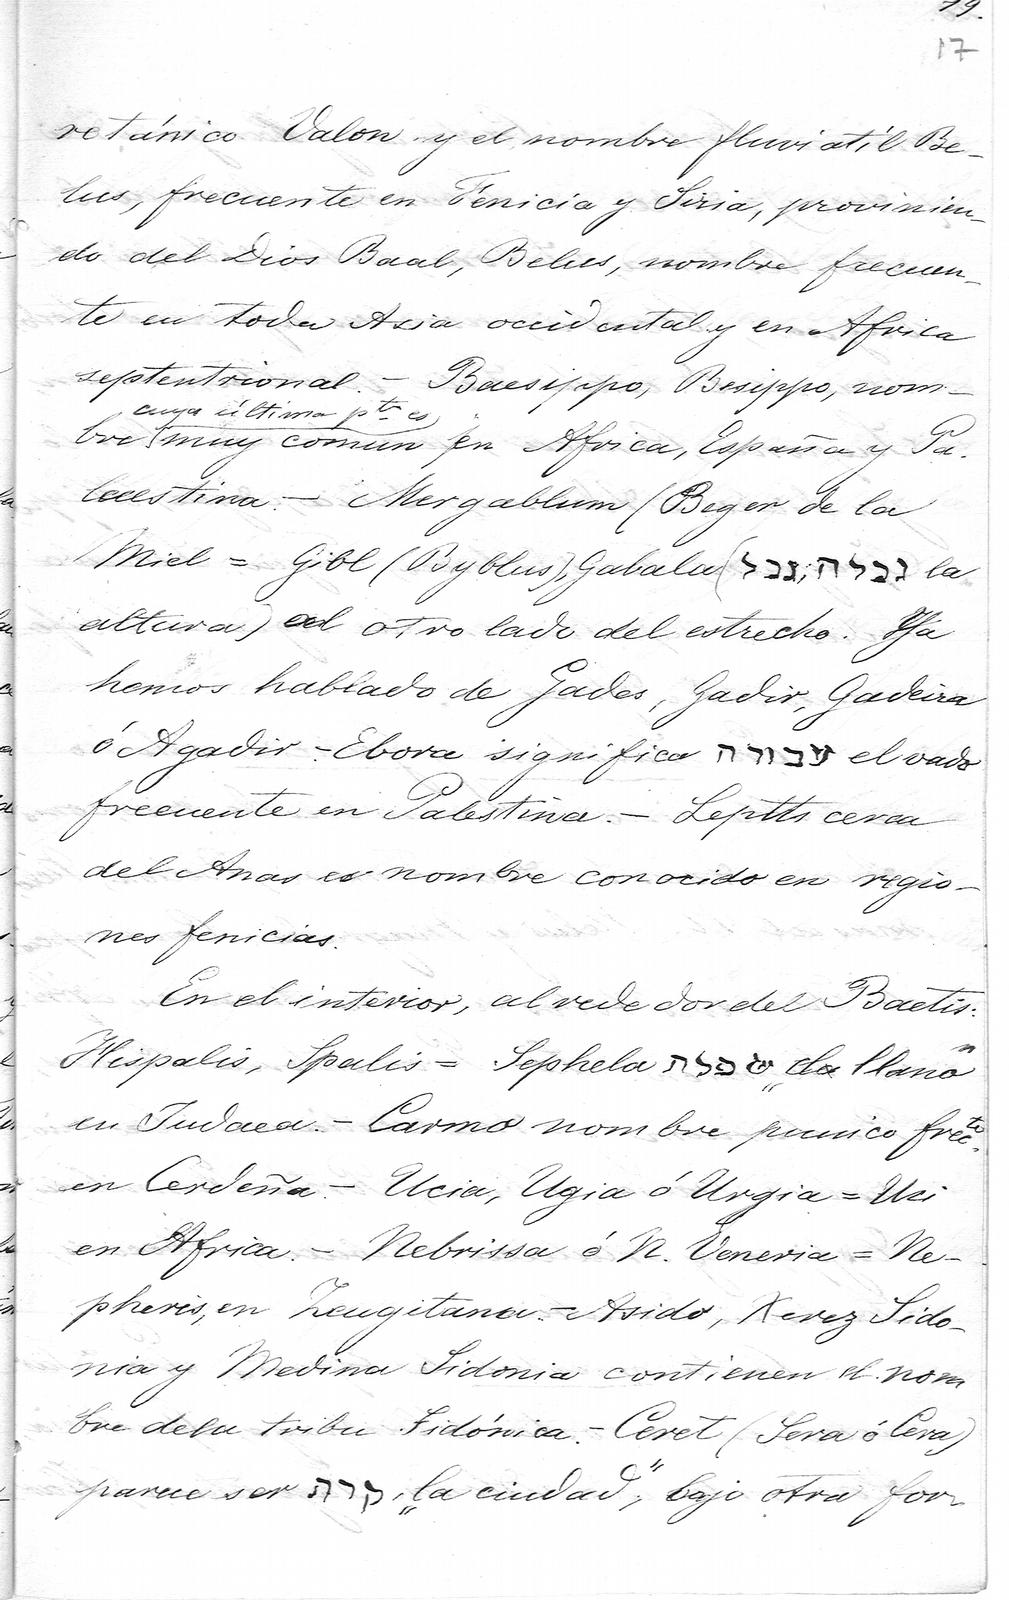 19.
17
retánico Valon y el nombre fluviatíl Be-
lus, frecuente en Fenicia y Siria, provinien-
do del Dios Baal, Belus, nombre frecuen-
te en toda Asia occidental y en Africa
septentrional. – Baesippo, Besippo, nom-
cuya última pte es
bre muy comun en Africa, España y Pa-
laestina. – Mergablum (Beger de la
Miel = Gibl (Byblus), Gabala (גבלה; גבל la
altura) al otro lado del estrecho. Ya
hemos hablado de Gades, Gadir, Gadeira
ó Agadir – Ebora significa עבורה el vado
frecuente en Palestina. – Leptis cerca
del Anas es nombre conocido en regio-
nes fenicias.
En el interior, al rededor del Baetis:
Hispalis, Spalis = Sephela שפלה „la llano n
en Judaea. – Carmo nombre punico frecte.
en Cerdeña – Ucia, Ugia ó Urgia = Uci
en Africa. – Nebrissa ó N. Veneria = Ne-
pheris, en Zeugitana. – Asido, Xerez Sido-
nia y Medina Sidonia contienen el nom
bre dela tribu Sidónica. – Ceret (Sera ó Cera)
parece ser קרה, „la ciudad“; bajo otra for-